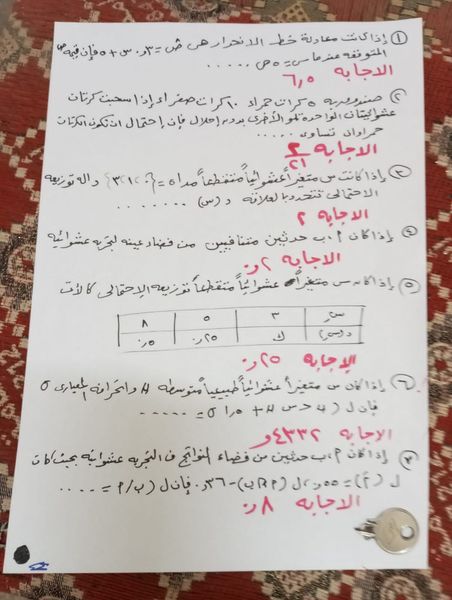 ① إذا كانت معادلة خط الانحدار هى ص = ٣و٠ س + ٥ فإن قيمة ص
المتوقعه عند ما س = ٥ هى . . . . .
الاجابه ٦٫٥
② صندوق به ٥ كرات حمراء ١٠ كرات صفراء إذا سحبت كرتان
عشوائيتان الواحدة تلو الأخرى بدون إحلال فإن إحتمال ان تكون الكرتان
حمراوان تساوى . . . . .
الاجابه ٢/٢١
③ إذا كانت س متغيراً عشوائياً متقطعاً مداه = دالة توزيعه
الاحتمالى تتحدد بالعلاقة د(س) . . . . . . .
الاجابه ٢
④ إذا كان ٢، ب حدثين متنافيين من فضاء عينه لتجربه عشوائيه
الاجابه ٢و٠
⑤ إذا كان س متغيراً عشوائياً متقطعاً توزيعه الإحتمالى كالآت
سر ٣ ٥ ٨
د(سر) ك ٢٥و٠ ٥و٠
الإجابه ٢٥و٠
⑥ إذا كان س متغيراً عشوائياً طبيعياً متوسطه μ وانحرافه المعيارى σ
فإن ل (μ < س < μ + ١٫٥ σ) = . . . . . .
الاجابه ٤٣٣٢و
⑦ إذا كان ٢، ب حدثين من فضاء النواتج ف التجربه عشوائيه بحيث كان
ل (٢) = ل (٢ ∩ ب) = ٣٦و٠ فإن ل (ب/٢) = . . . .
الاجابه ٨و٠